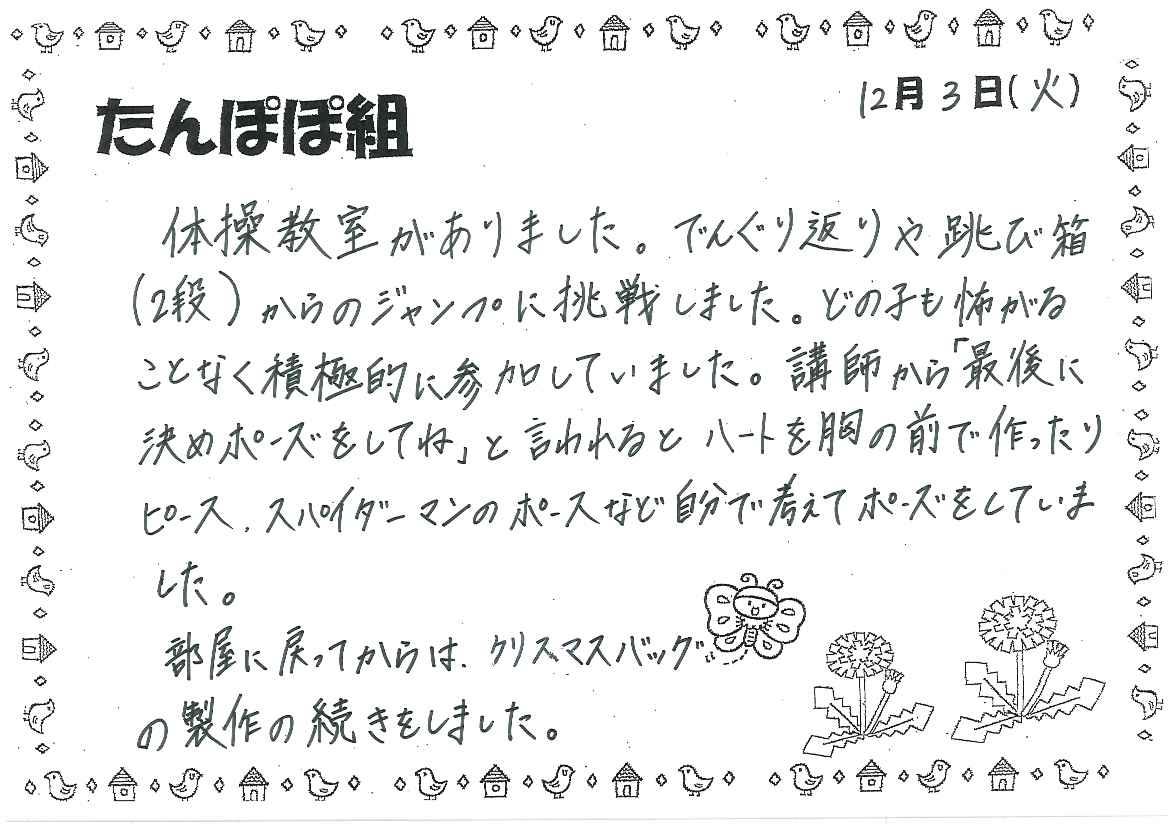 12月3日(火)
たんぽぽ組
体操教室がありました。でんぐり返りや跳び箱
(2段)からのジャンプに挑戦しました。どの子も怖がる
ことなく積極的に参加していました。講師から「最後に
決めポーズをしてね」と言われるとハートを胸の前で作ったり
ピース、スパイダーマンのポーズなど自分で考えてポーズをしていま
した。
部屋に戻ってからは、クリスマスバッグ
の製作の続きをしました。